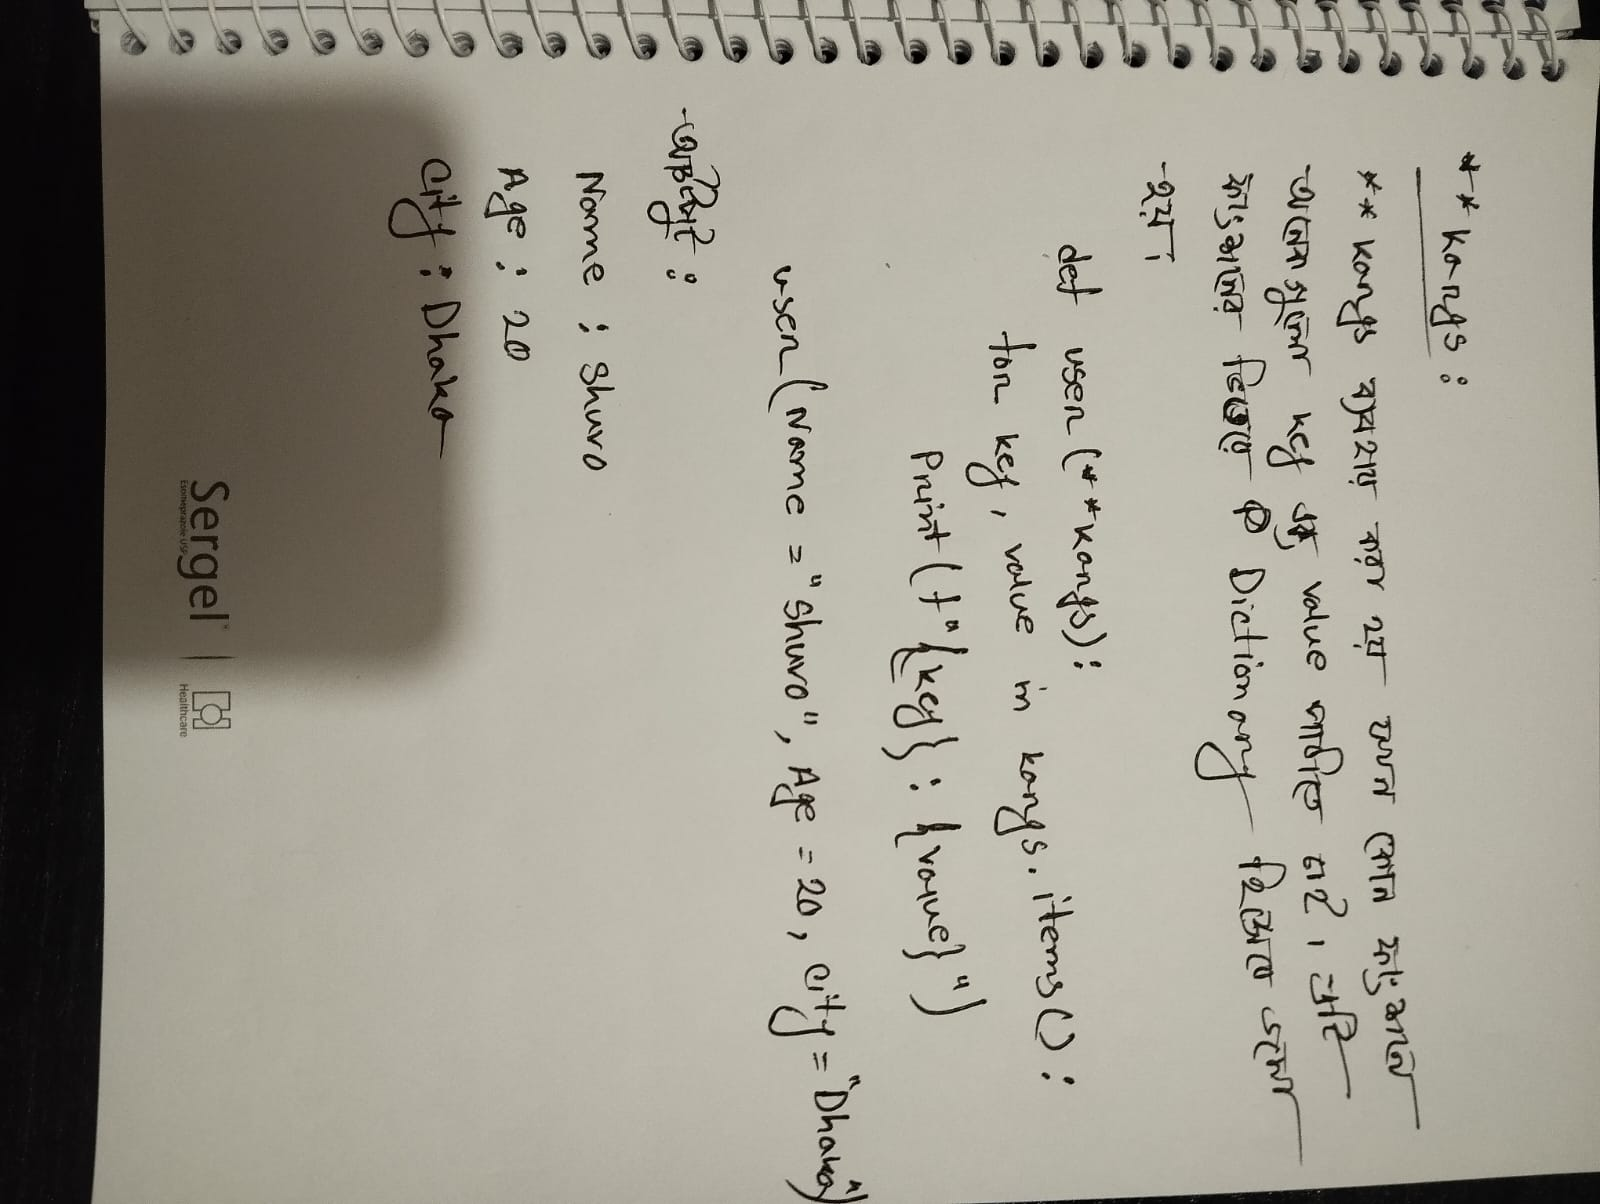 **kargs :
** kargs ব্যবহার করা হয় যখন কোন ফাংশনে
অনেকগুলো key এবং value পাঠাতে চাই। এটি
ফাংশনের ভিতরে Dictionary হিসেবে জমা
হয়।
def user(**kargs):
for key, value in kargs.items():
Print(f"{key} : {value}")
user(Name = "Shuvo", Age = 20, City = "Dhaka")
আউটপুট :
Name : Shuvo
Age : 20
City : Dhaka
Sergel
Esomeprazole USP
Healthcare